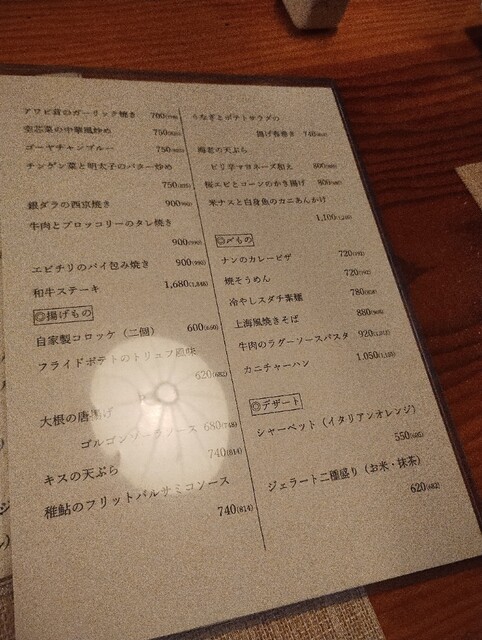 アワビ茸のガーリック焼き 700(770)
空芯菜の中華風炒め 750(825)
ゴーヤチャンプルー 750(825)
チンゲン菜と明太子のバター炒め
750(825)
銀ダラの西京焼き 900(990)
牛肉とブロッコリーのタレ焼き
900(990)
エビチリのパイ包み焼き 900(990)
和牛ステーキ 1,680(1,848)
◎揚げもの
自家製コロッケ（二個） 600(660)
フライドポテトのトリュフ風味
620(682)
大根の唐揚げ
ゴルゴンゾーラソース 680(748)
キスの天ぷら 740(814)
稚鮎のフリットバルサミコソース
740(814)
うなぎとポテトサラダの
揚げ春巻き 740(814)
海老の天ぷら
ピリ辛マヨネーズ和え 800(880)
桜エビとコーンのかき揚げ 800(880)
米ナスと白身魚のカニあんかけ
1,100(1,210)
◎〆もの
ナンのカレーピザ 720(792)
焼そうめん 720(792)
冷やしスダチ素麺 780(858)
上海風焼きそば 880(968)
牛肉のラグーソースパスタ 920(1,012)
カニチャーハン 1,050(1,155)
◎デザート
シャーベット（イタリアンオレンジ）
550(605)
ジェラート二種盛り（お米・抹茶）
620(682)